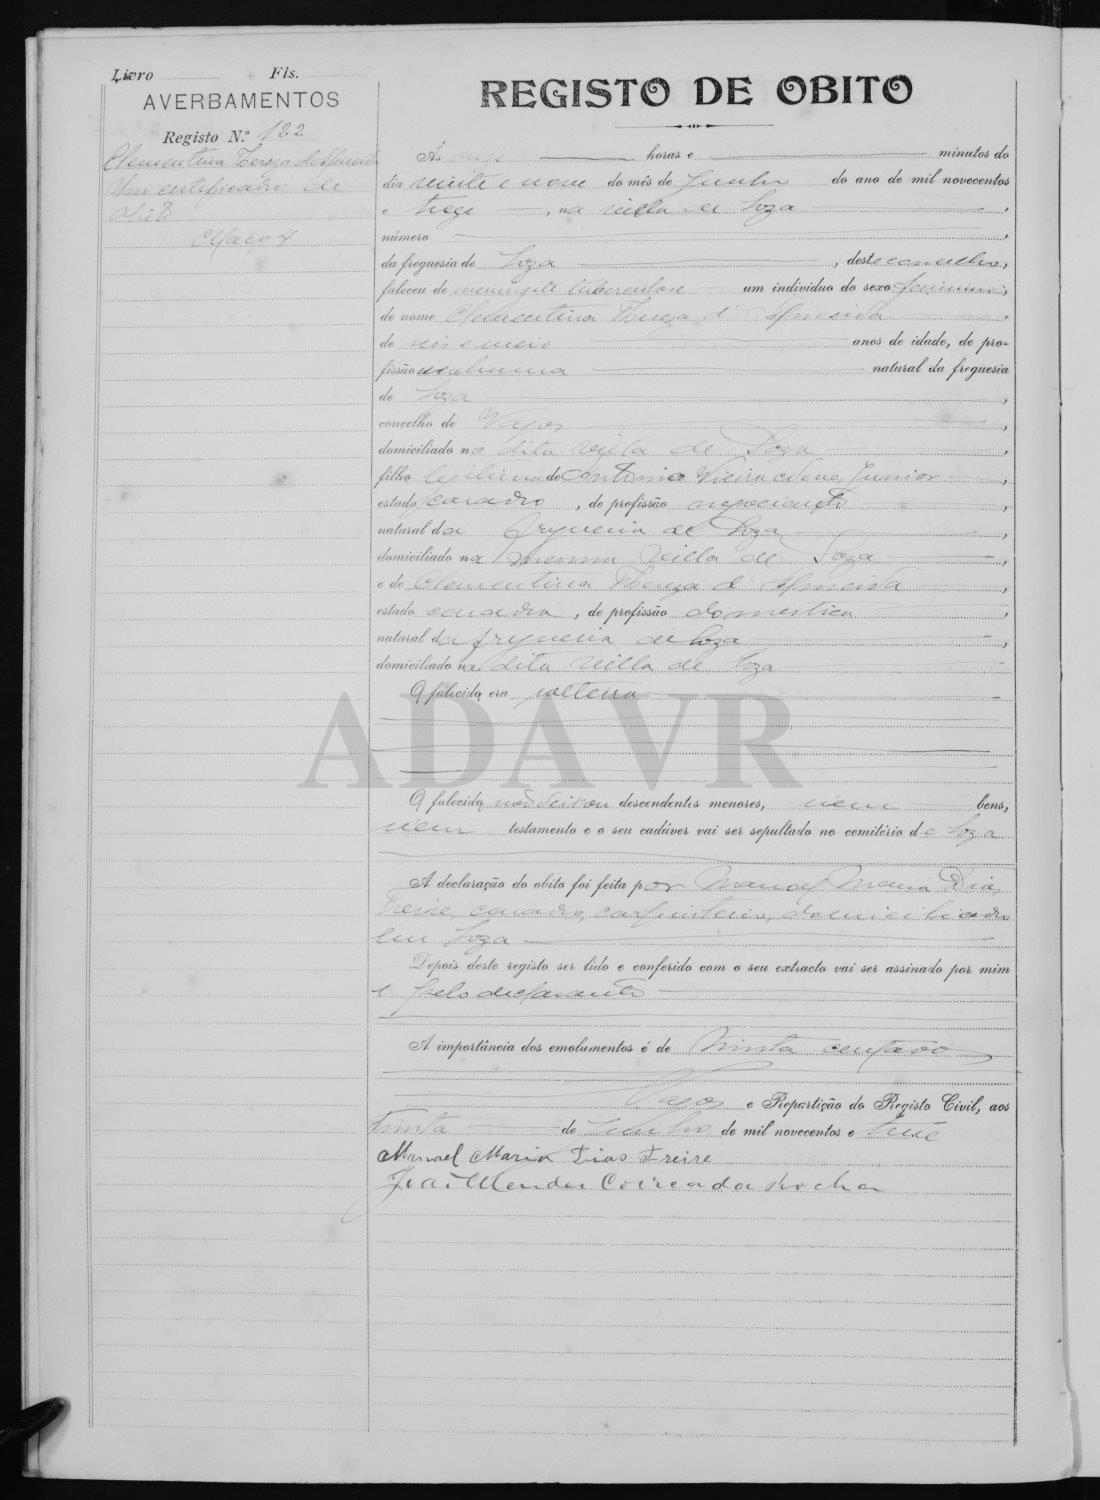 Livro Fls.
AVERBAMENTOS
Registo N.º 122
Clementina Thereza d'Almeida
Um certificado de
obito
Maço 4
REGISTO DE OBITO
Ás onze horas e minutos do
dia vinte e nove do mês de Junho do ano de mil novecentos
e treze, na villa de Soza,
número
da freguesia de Soza, deste concelho,
faleceu de meningite tuberculose um indivíduo do sexo feminino,
de nome Clementina Thereza d'Almeida,
de seis e meio anos de idade, de pro-
fissão nenhuma natural da freguesia
de Soza,
concelho de Vagos,
domiciliado na dita villa de Soza
filha legitima de Antonio Vieira Junior,
estado casado, de profissão negociante
natural da freguesia de Soza,
domiciliado na mesma villa de Soza,
e de Clementina Thereza d'Almeida,
estado casada, de profissão domestica,
natural da freguesia de Soza,
domiciliado na dita villa de Soza
A falecida era solteira
ADAVR
A falecida não deixou descendentes menores, nem bens,
nem testamento e o seu cadáver vai ser sepultado no cemitério de Soza
A declaração do obito foi feita por Manoel Maria Dias
Freire, casado, carpinteiro, domiciliado
em Soza
Depois deste registo ser lido e conferido com o seu extracto vai ser assinado por mim
e pelo declarante
A importância dos emolumentos é de trinta centavos,
Vagos e Repartição do Registo Civil, aos
trinta de Junho de mil novecentos e treze
Manoel Maria Dias Freire
João Mendes Correa da Rocha